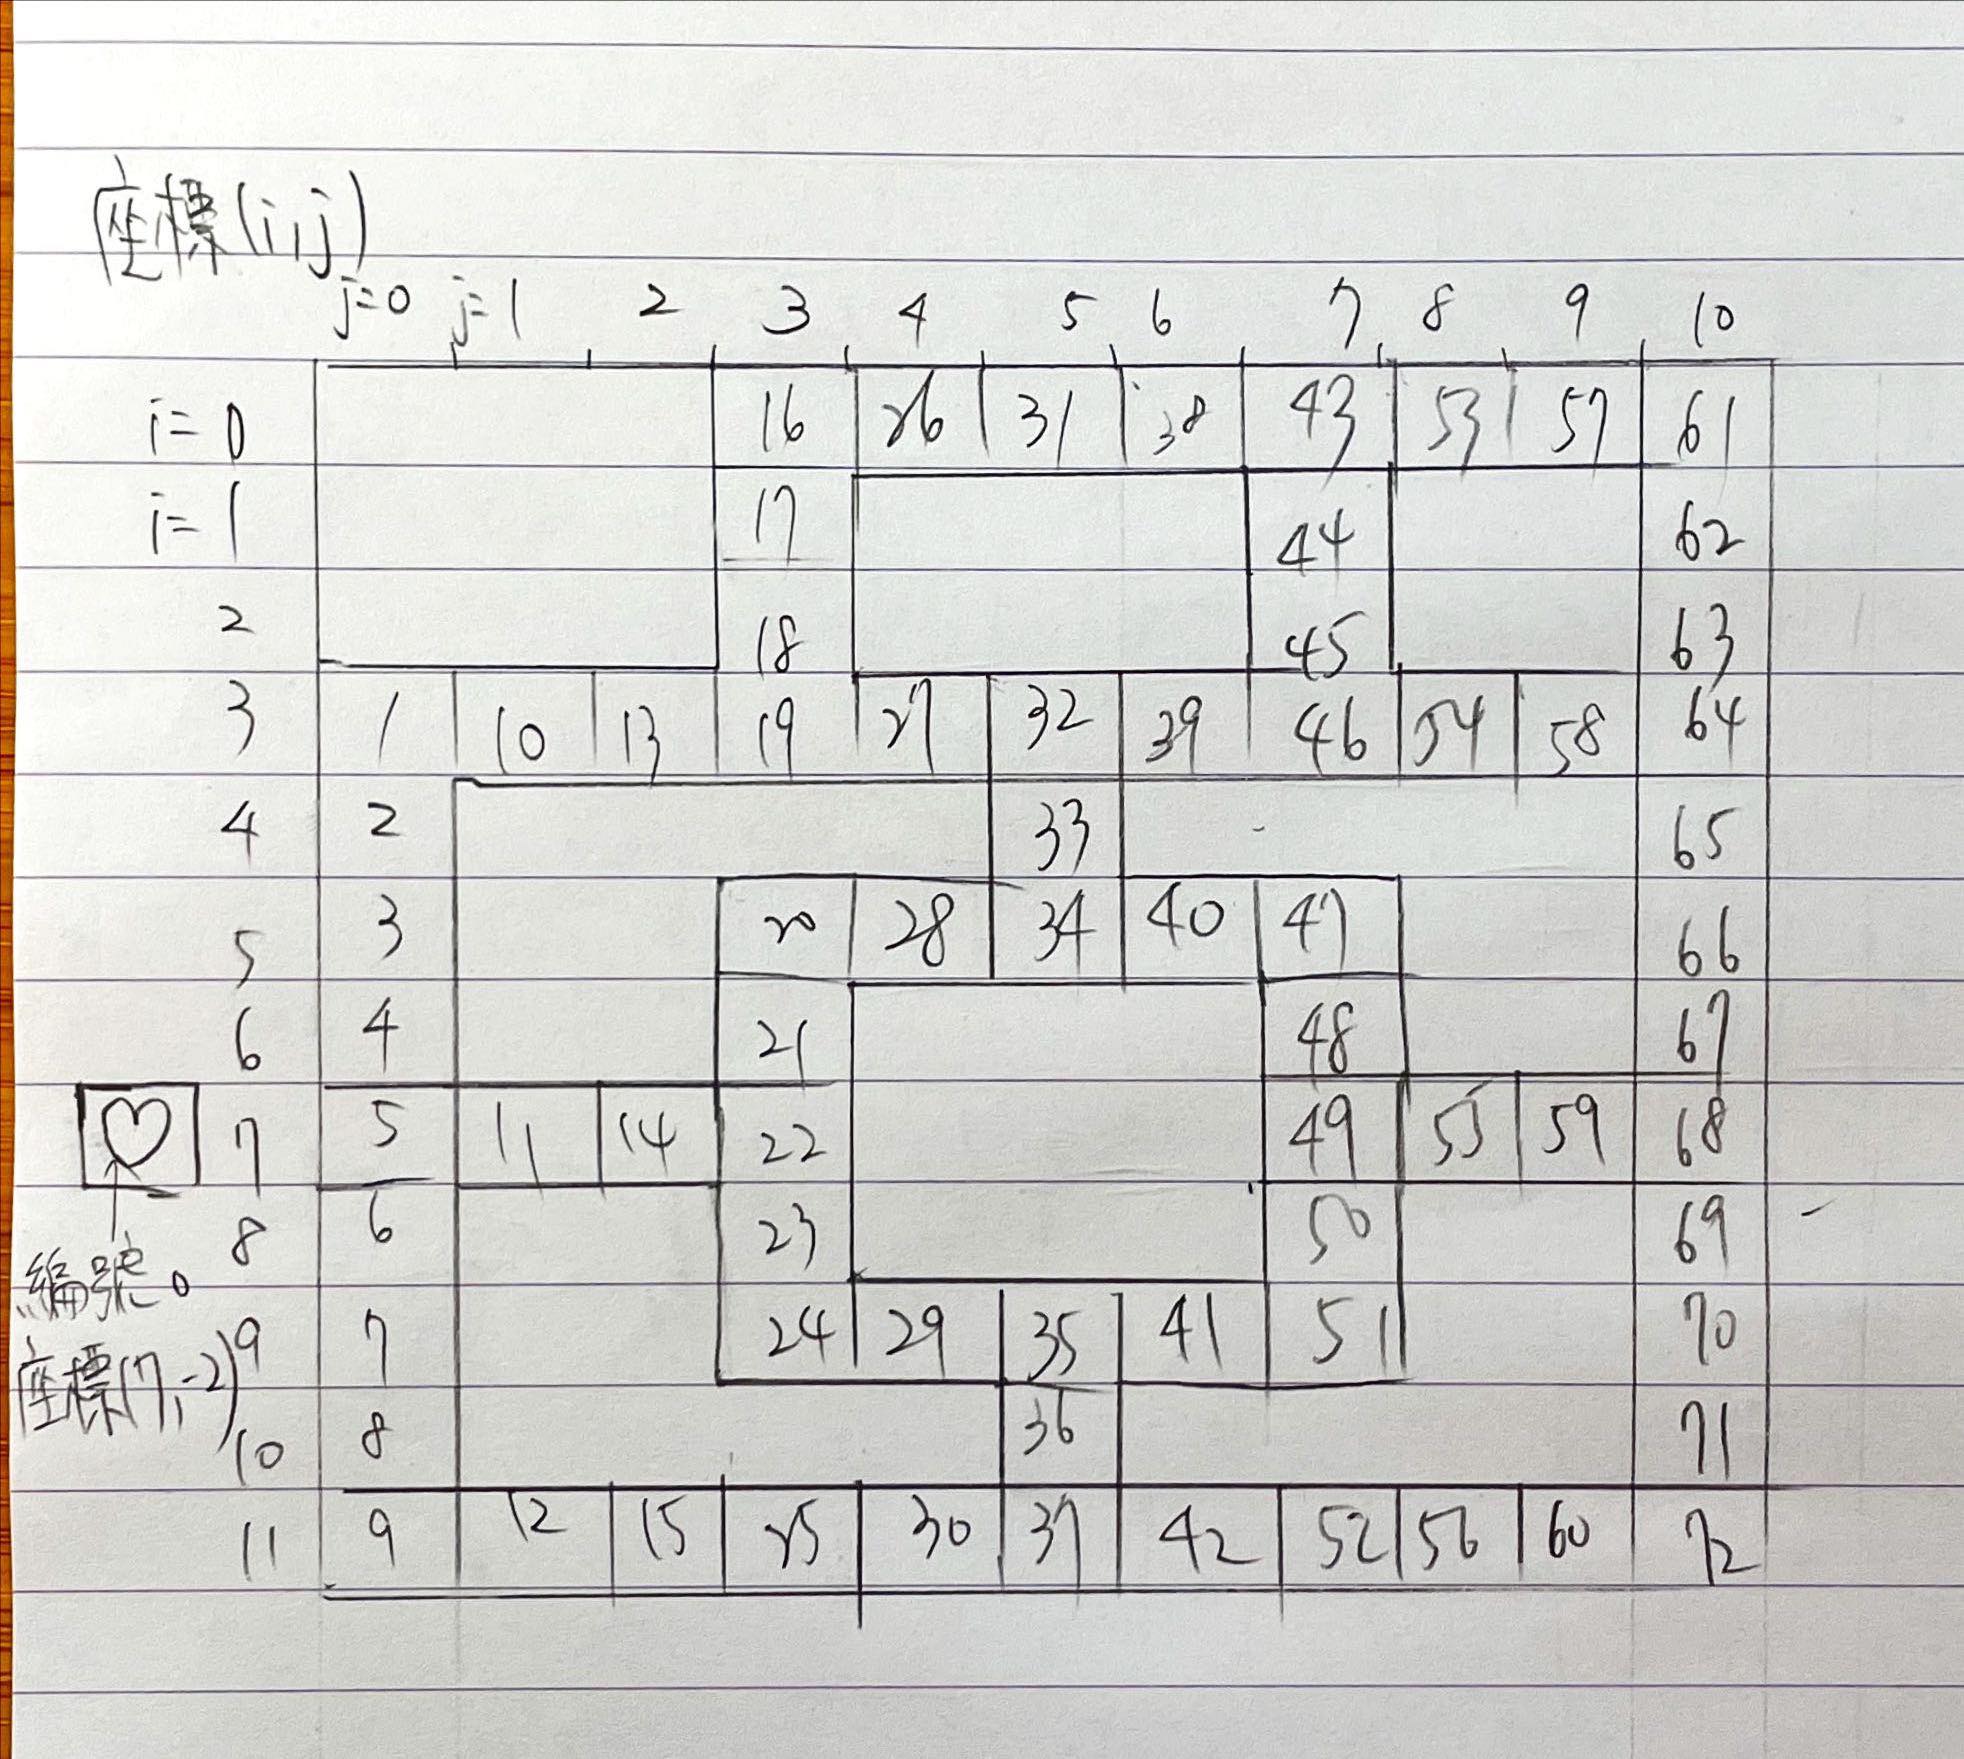 座標(i,j)
j=0 j=1 2 3 4 5 6 7 8 9 10
i=0 16 26 31 38 43 53 57 61
i=1 17 44 62
2 18 45 63
3 1 10 13 19 27 32 39 46 54 58 64
4 2 33 65
5 3 20 28 34 40 47 66
6 4 21 48 67
7 5 11 14 22 49 55 59 68
8 6 23 50 69
編號0
9 7 24 29 35 41 51 70
座標(7,-2)
10 8 36 71
11 9 12 15 25 30 37 42 52 56 60 72